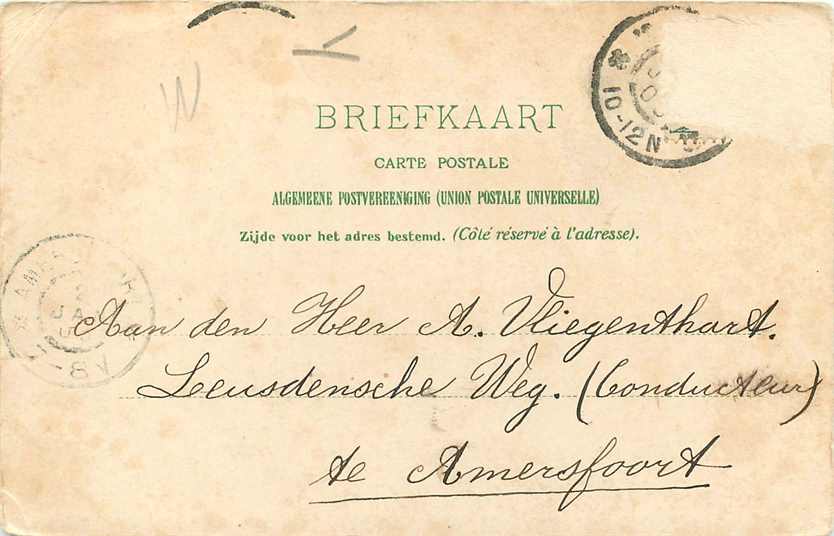 BRIEFKAART
CARTE POSTALE
ALGEMEENE POSTVEREENIGING (UNION POSTALE UNIVERSELLE)
Zijde voor het adres bestemd. (Côté réservé à l'adresse).
10-12N
8V
Aan den Heer A. Vliegenthart.
Leusdensche Weg. (Conducteur)
te Amersfoort